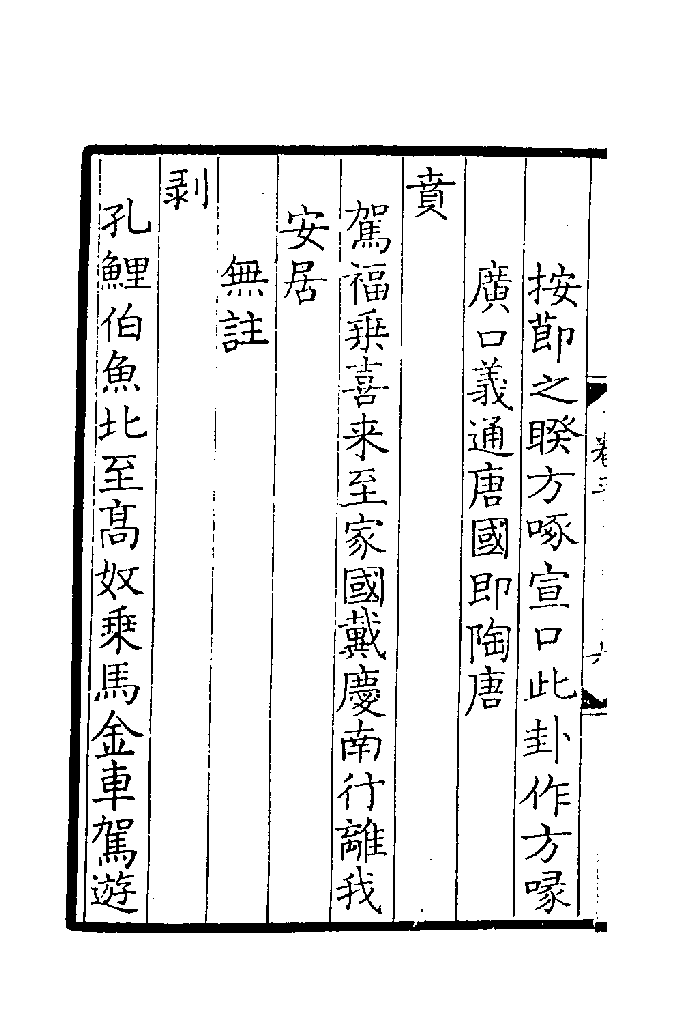 按節之睽方啄宣口此卦作方喙
廣口義通唐國即陶唐
賁
駕福乗喜来至家國戴慶南行離我
安居
無註
剥
孔鯉伯魚北至髙奴乗馬金車駕遊